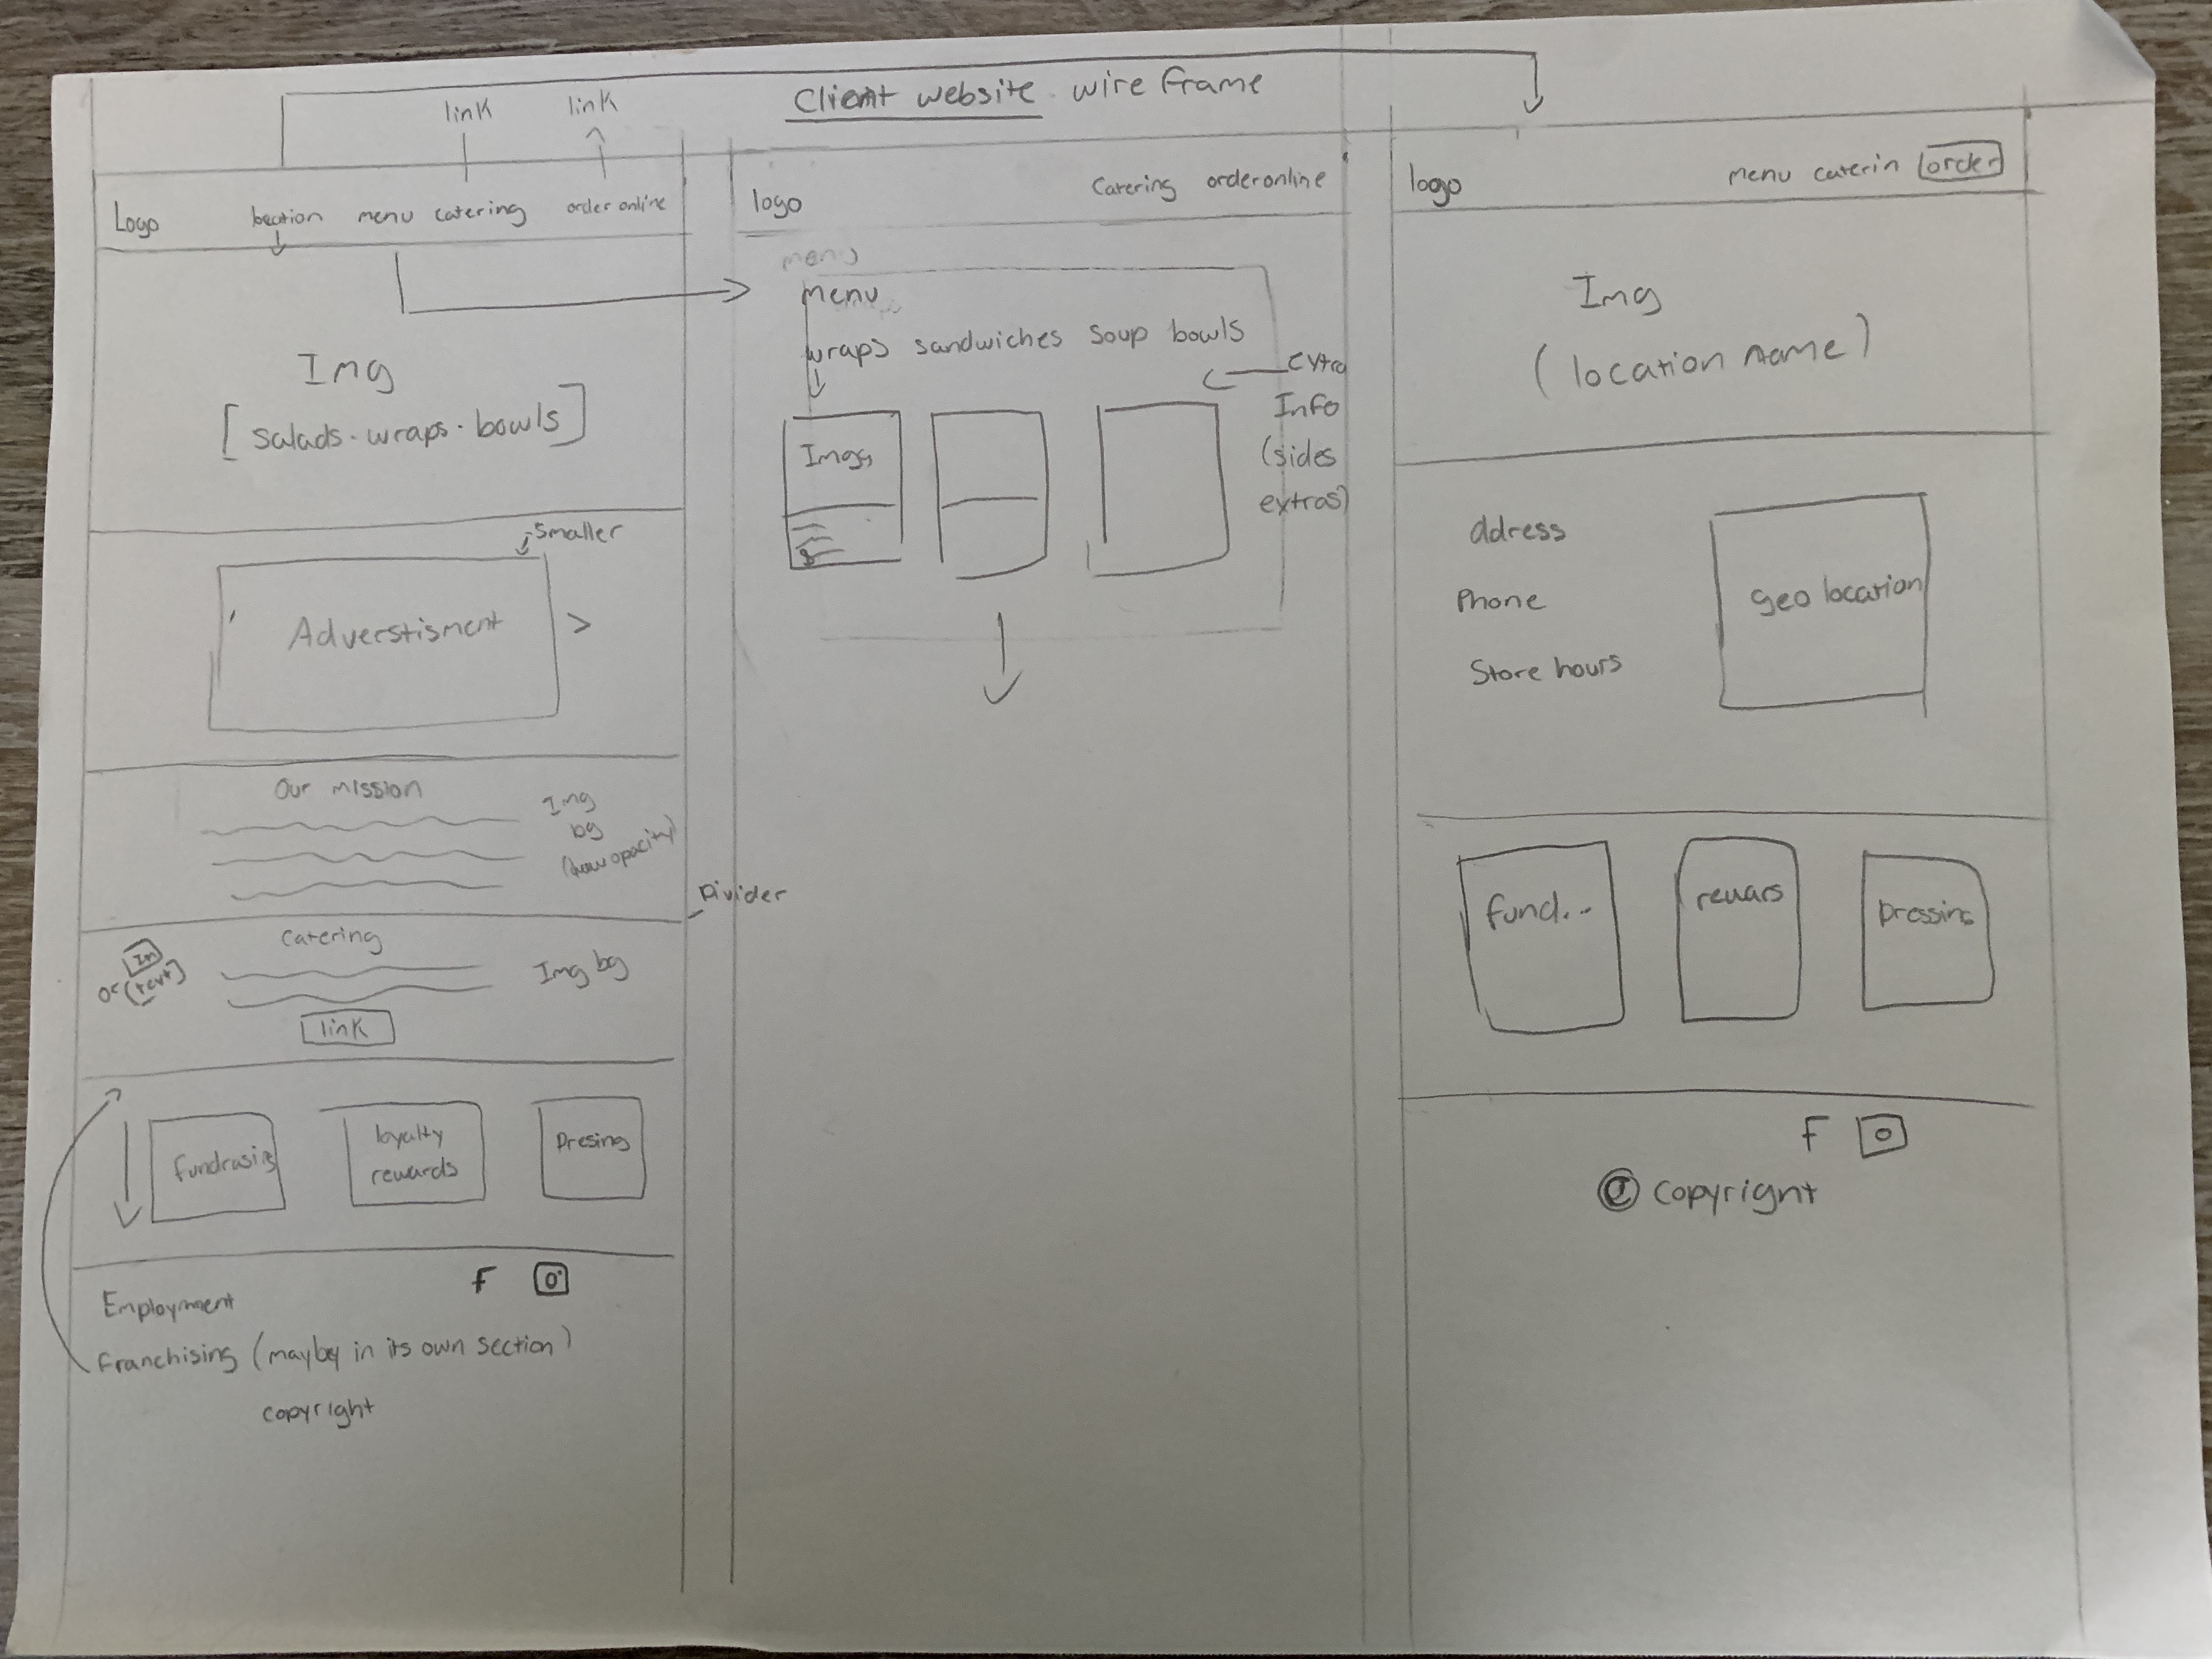 Client website wire frame
link
link
Logo
location menu catering order online
Img
[salads · wraps · bowls]
smaller
Adverstisment >
Our mission
Img
bg
(low opacity)
Divider
Catering
Im
or (text)
Img bg
link
fundrasing
loyalty
rewards
Dressing
F
Employment
Franchising (maybey in its own section)
copyright
logo
Catering order online
menu
menu
wraps sandwiches soup bowls
Extra
Info
(sides
extras)
Imgs
$
logo
menu caterin order
Img
(location name)
Adress
Phone
Store hours
geo location
fund...
rewars
Dressing
F
© copyright